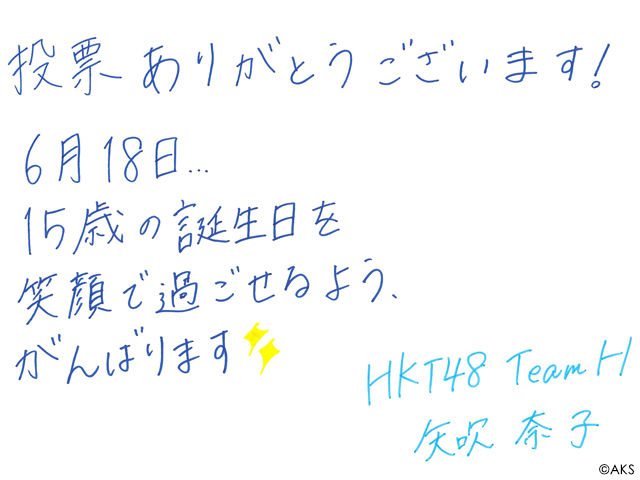 投票ありがとうございます!
6月18日...
15歳の誕生日を
笑顔で過ごせるよう、
がんばります
HKT48 Team H
矢吹 奈子
©AKS